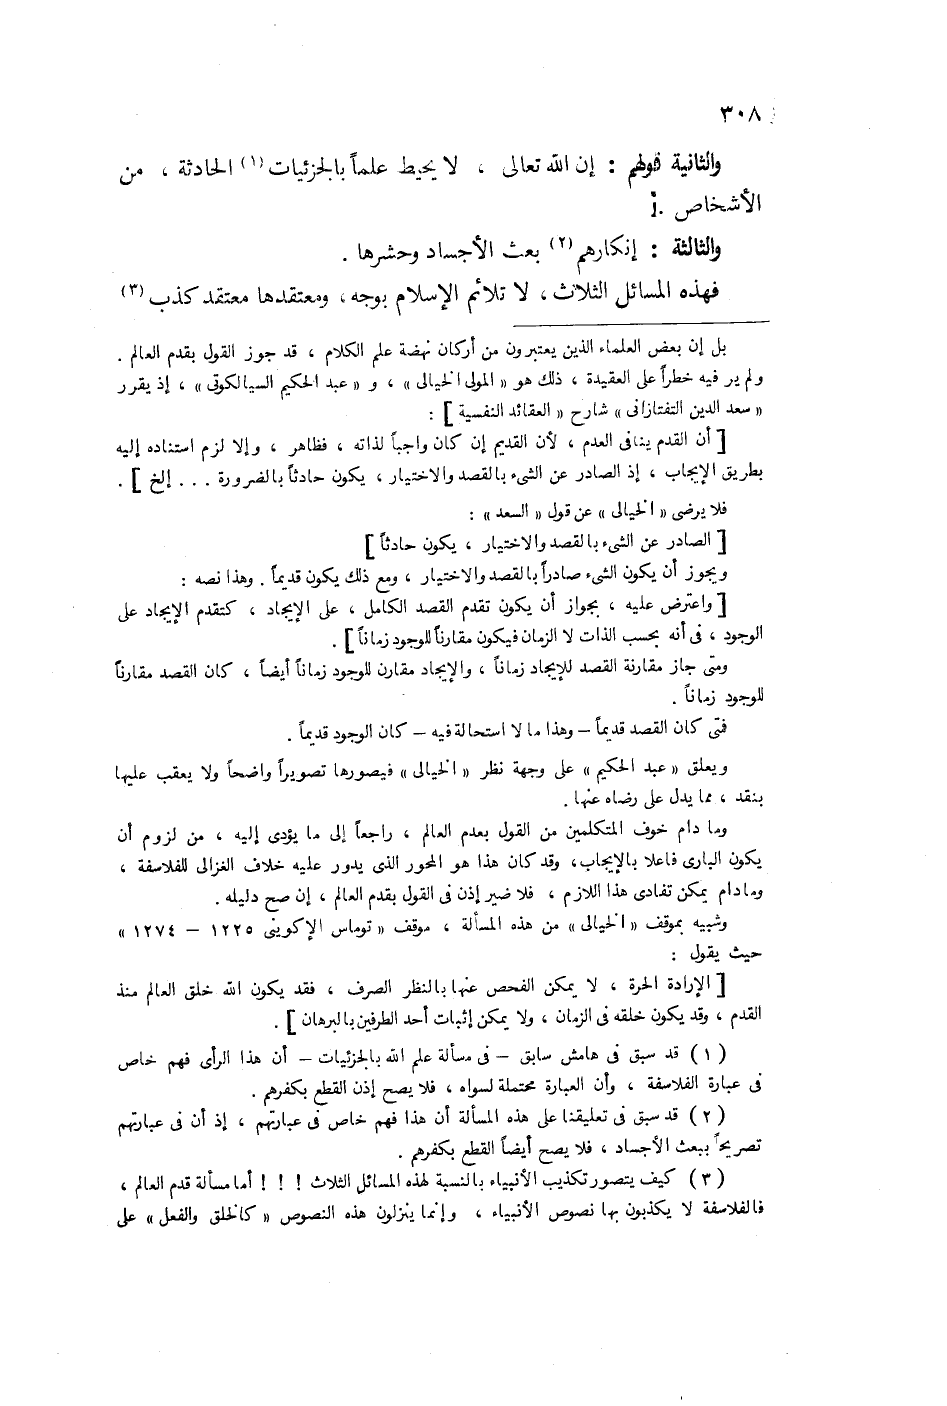 ٣٠٨
والثانية قولهم : إن الله تعالى ، لا يحيط علماً بالجزئيات (١) الحادثة ، من
الأشخاص .
والثالثة : إنكارهم (٢) بعث الأجساد وحشرها .
فهذه المسائل الثلاث ، لا تلائم الإسلام بوجه ، ومعتقدها معتقد كذب (٣)
بل إن بعض العلماء الذين يعتبرون من أركان نهضة علم الكلام ، قد جوز القول بقدم العالم .
ولم ير فيه خطراً على العقيدة ، ذلك هو « المولى الخيالى » ، و « عبد الحكيم السيالكوتى » ، إذ يقرر
« سعد الدين التفتازانى » شارح « العقائد النفسية ] :
[ أن القدم ينافى العدم ، لأن القديم إن كان واجباً لذاته ، فظاهر ، وإلا لزم استناده إليه
بطريق الإيجاب ، إذ الصادر عن الشىء بالقصد والاختيار ، يكون حادثاً بالضرورة . . . إلخ ] .
فلا يرضى « الخيالى » عن قول « السعد » :
[ الصادر عن الشىء بالقصد والاختيار ، يكون حادثاً ]
ويجوز أن يكون الشىء صادراً بالقصد والاختيار ، ومع ذلك يكون قديماً . وهذا نصه :
[ واعترض عليه ، بجواز أن يكون تقدم القصد الكامل ، على الإيجاد ، كتقدم الإيجاد على
الوجود ، فى أنه بحسب الذات لا الزمان فيكون مقارناً للوجود زماناً ] .
ومتى جاز مقارنة القصد للإيجاد زماناً ، والإيجاد مقارن للوجود زماناً أيضاً ، كان القصد مقارناً
للوجود زماناً .
فمتى كان القصد قديماً – وهذا ما لا استحالة فيه – كان الوجود قديماً .
ويعلق « عبد الحكيم » على وجهة نظر « الخيالى » فيصورها تصويراً واضحاً ولا يعقب عليها
بنقد ، مما يدل على رضاه عنها .
وما دام خوف المتكلمين من القول بعدم العالم ، راجعاً إلى ما يؤدى إليه ، من لزوم أن
يكون البارى فاعلا بالإيجاب ، وقد كان هذا هو المحور الذى يدور عليه خلاف الغزالى للفلاسفة ،
ومادام يمكن تفادى هذا اللازم ، فلا ضير إذن فى القول بقدم العالم ، إن صح دليله .
وشبيه بموقف « الخيالى » من هذه المسألة ، موقف « توماس الإكوينى ١٢٢٥ – ١٢٧٤ »
حيث يقول :
[ الإرادة الحرة ، لا يمكن الفحص عنها بالنظر الصرف ، فقد يكون الله خلق العالم منذ
القدم ، وقد يكون خلقه فى الزمان ، ولا يمكن إثبات أحد الطرفين بالبرهان ] .
( ١ ) قد سبق فى هامش سابق – فى مسألة علم الله بالجزئيات – أن هذا الرأى فهم خاص
فى عبارة الفلاسفة ، وأن العبارة محتملة لسواه ، فلا يصح إذن القطع بكفرهم .
( ٢ ) قد سبق فى تعليقنا على هذه المسألة أن هذا فهم خاص فى عبارتهم ، إذ أن فى عبارتهم
تصريحاً ببعث الأجساد ، فلا يصح أيضاً القطع بكفرهم .
( ٣ ) كيف يتصور تكذيب الأنبياء بالنسبة لهذه المسائل الثلاث ! ! ! أما مسألة قدم العالم ،
فالفلاسفة لا يكذبون بها نصوص الأنبياء ، وإنما ينزلون هذه النصوص « كالخلق والفعل » على